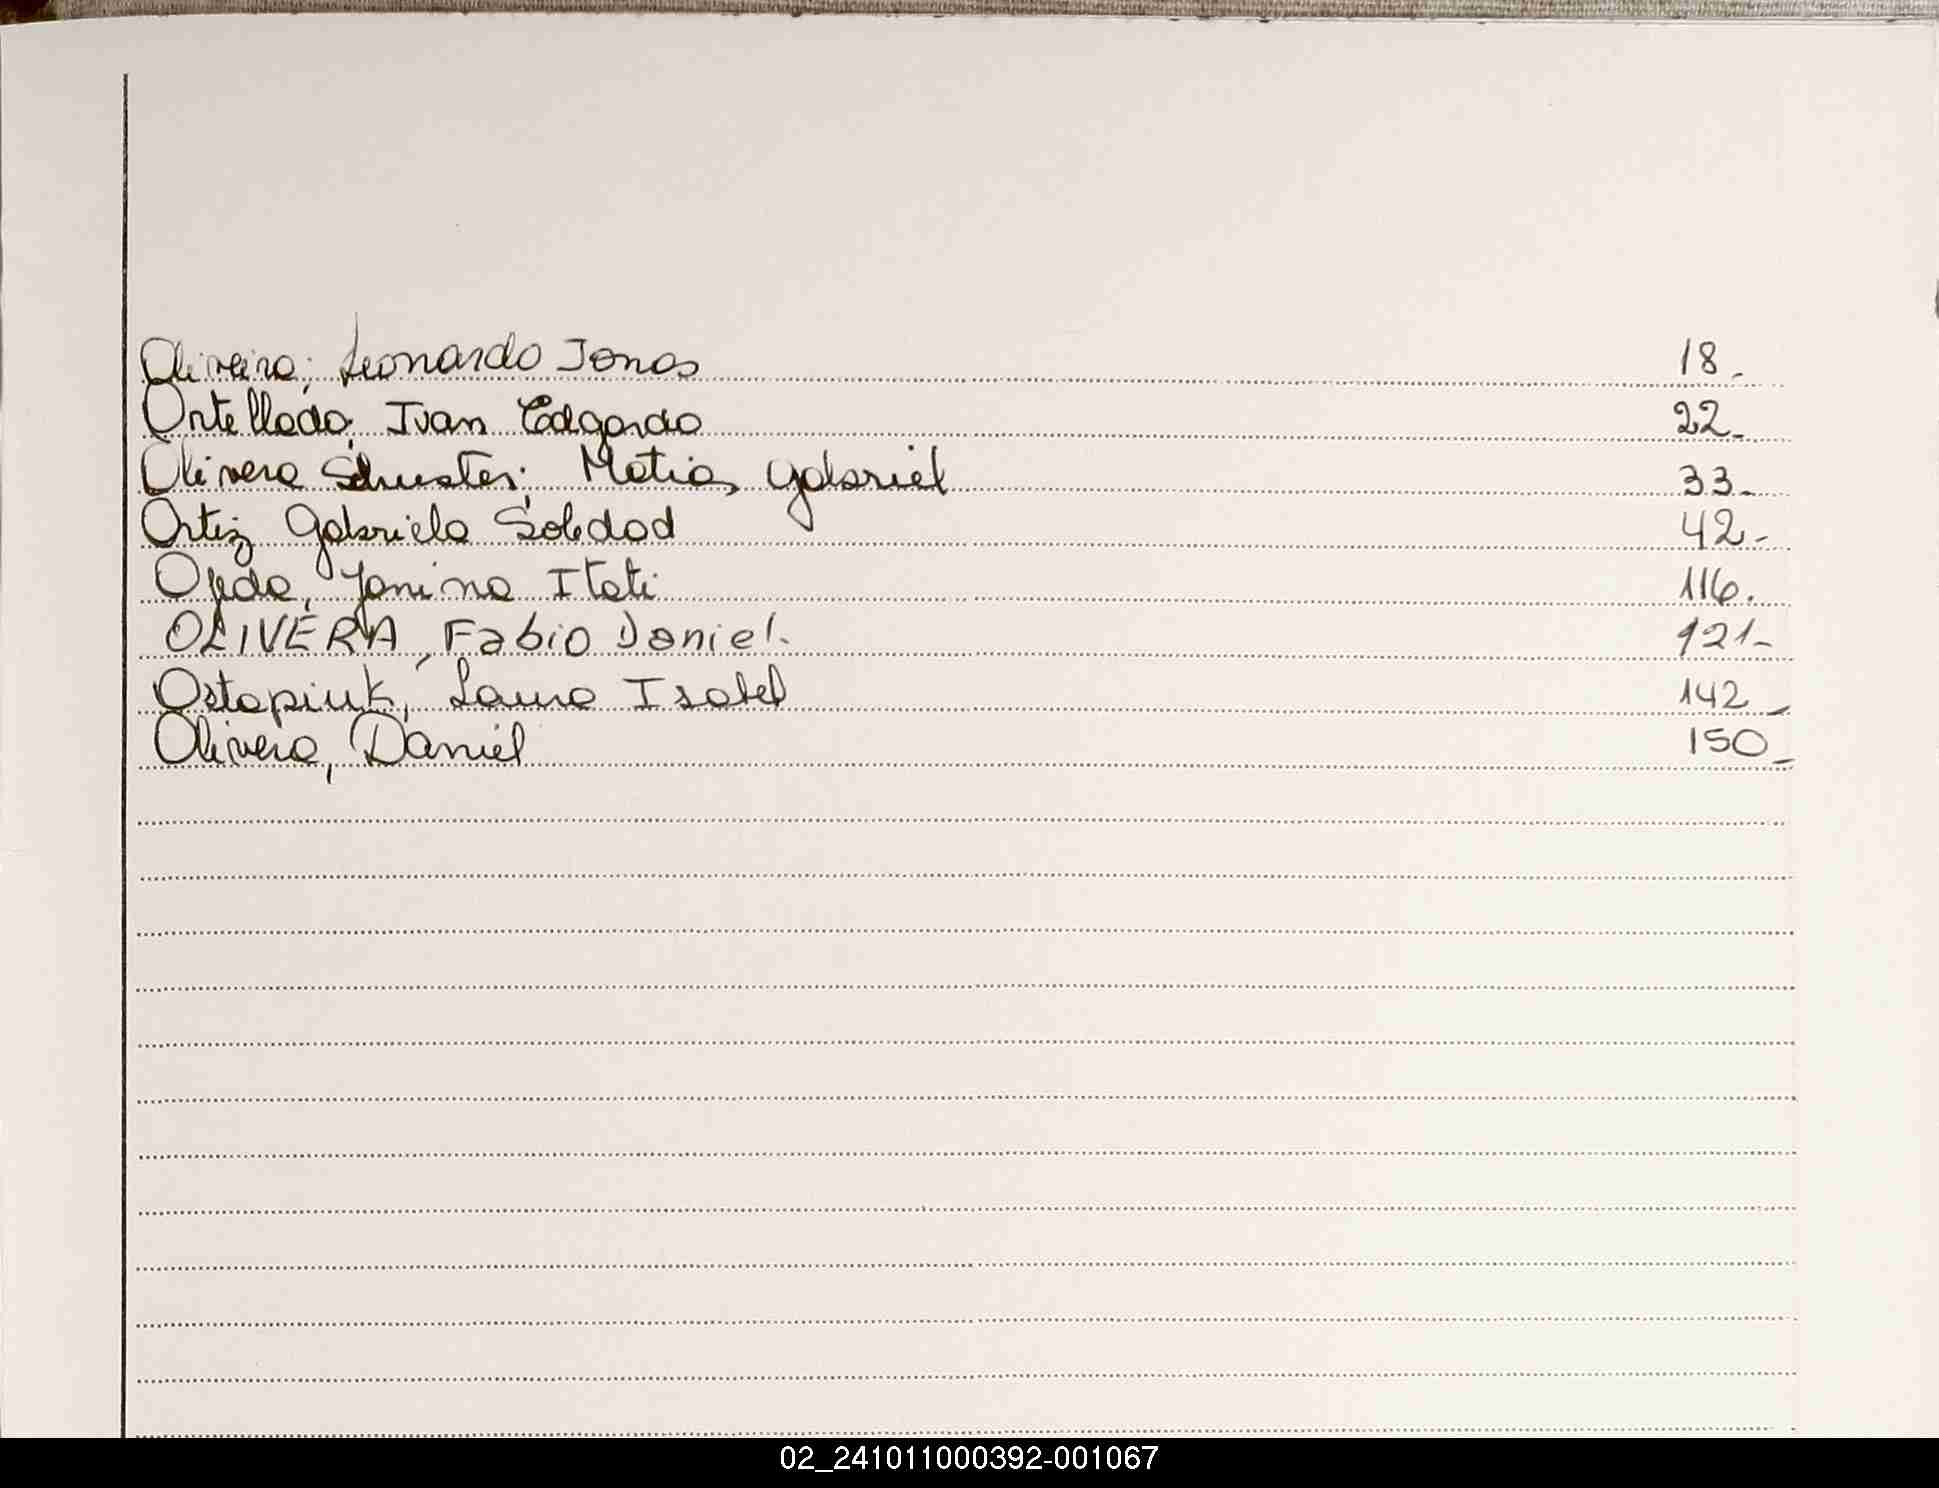 Oliveira; Leonardo Jonas 18-
Ortellado; Ivan Edgardo 22-
Olivera Schuster; Matias Gabriel 33-
Ortiz Gabriela Soledad 42-
Ojeda, Janina Itati 116.
OLIVERA, Fabio Daniel. 121-
Ostapiuk, Laura Isabel 142-
Olivera, Daniel 150-
02_241011000392-001067